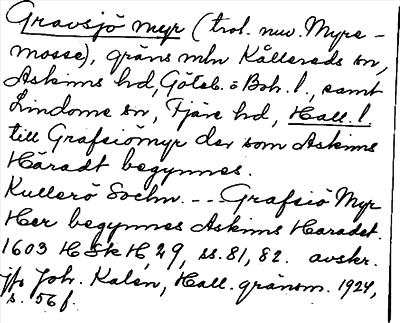 Gravsjö myr (trol. nuv. Myre-
mosse), gräns mln Kållereds sn,
Askims hd, Göteb. o Boh. l., samt
Lindome sn, Fjäre hd, Hall. l
till Grafsiömyr der som Askims
Häradt begynnes.
Kullerö Sochn. -- Grafsiö Myr
Her begynnes Askims Haradet.
1603 HSkH, 29, ss. 81, 82. avskr.
jfr Joh. Kalén, Hall. gränsm. 1924,
s. 56 f.